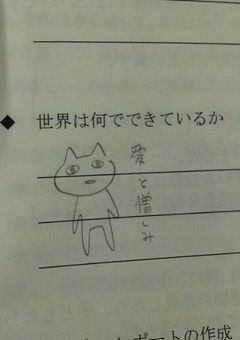 ◆ 世界は何でできているか
愛と憎しみ
レポートの作成